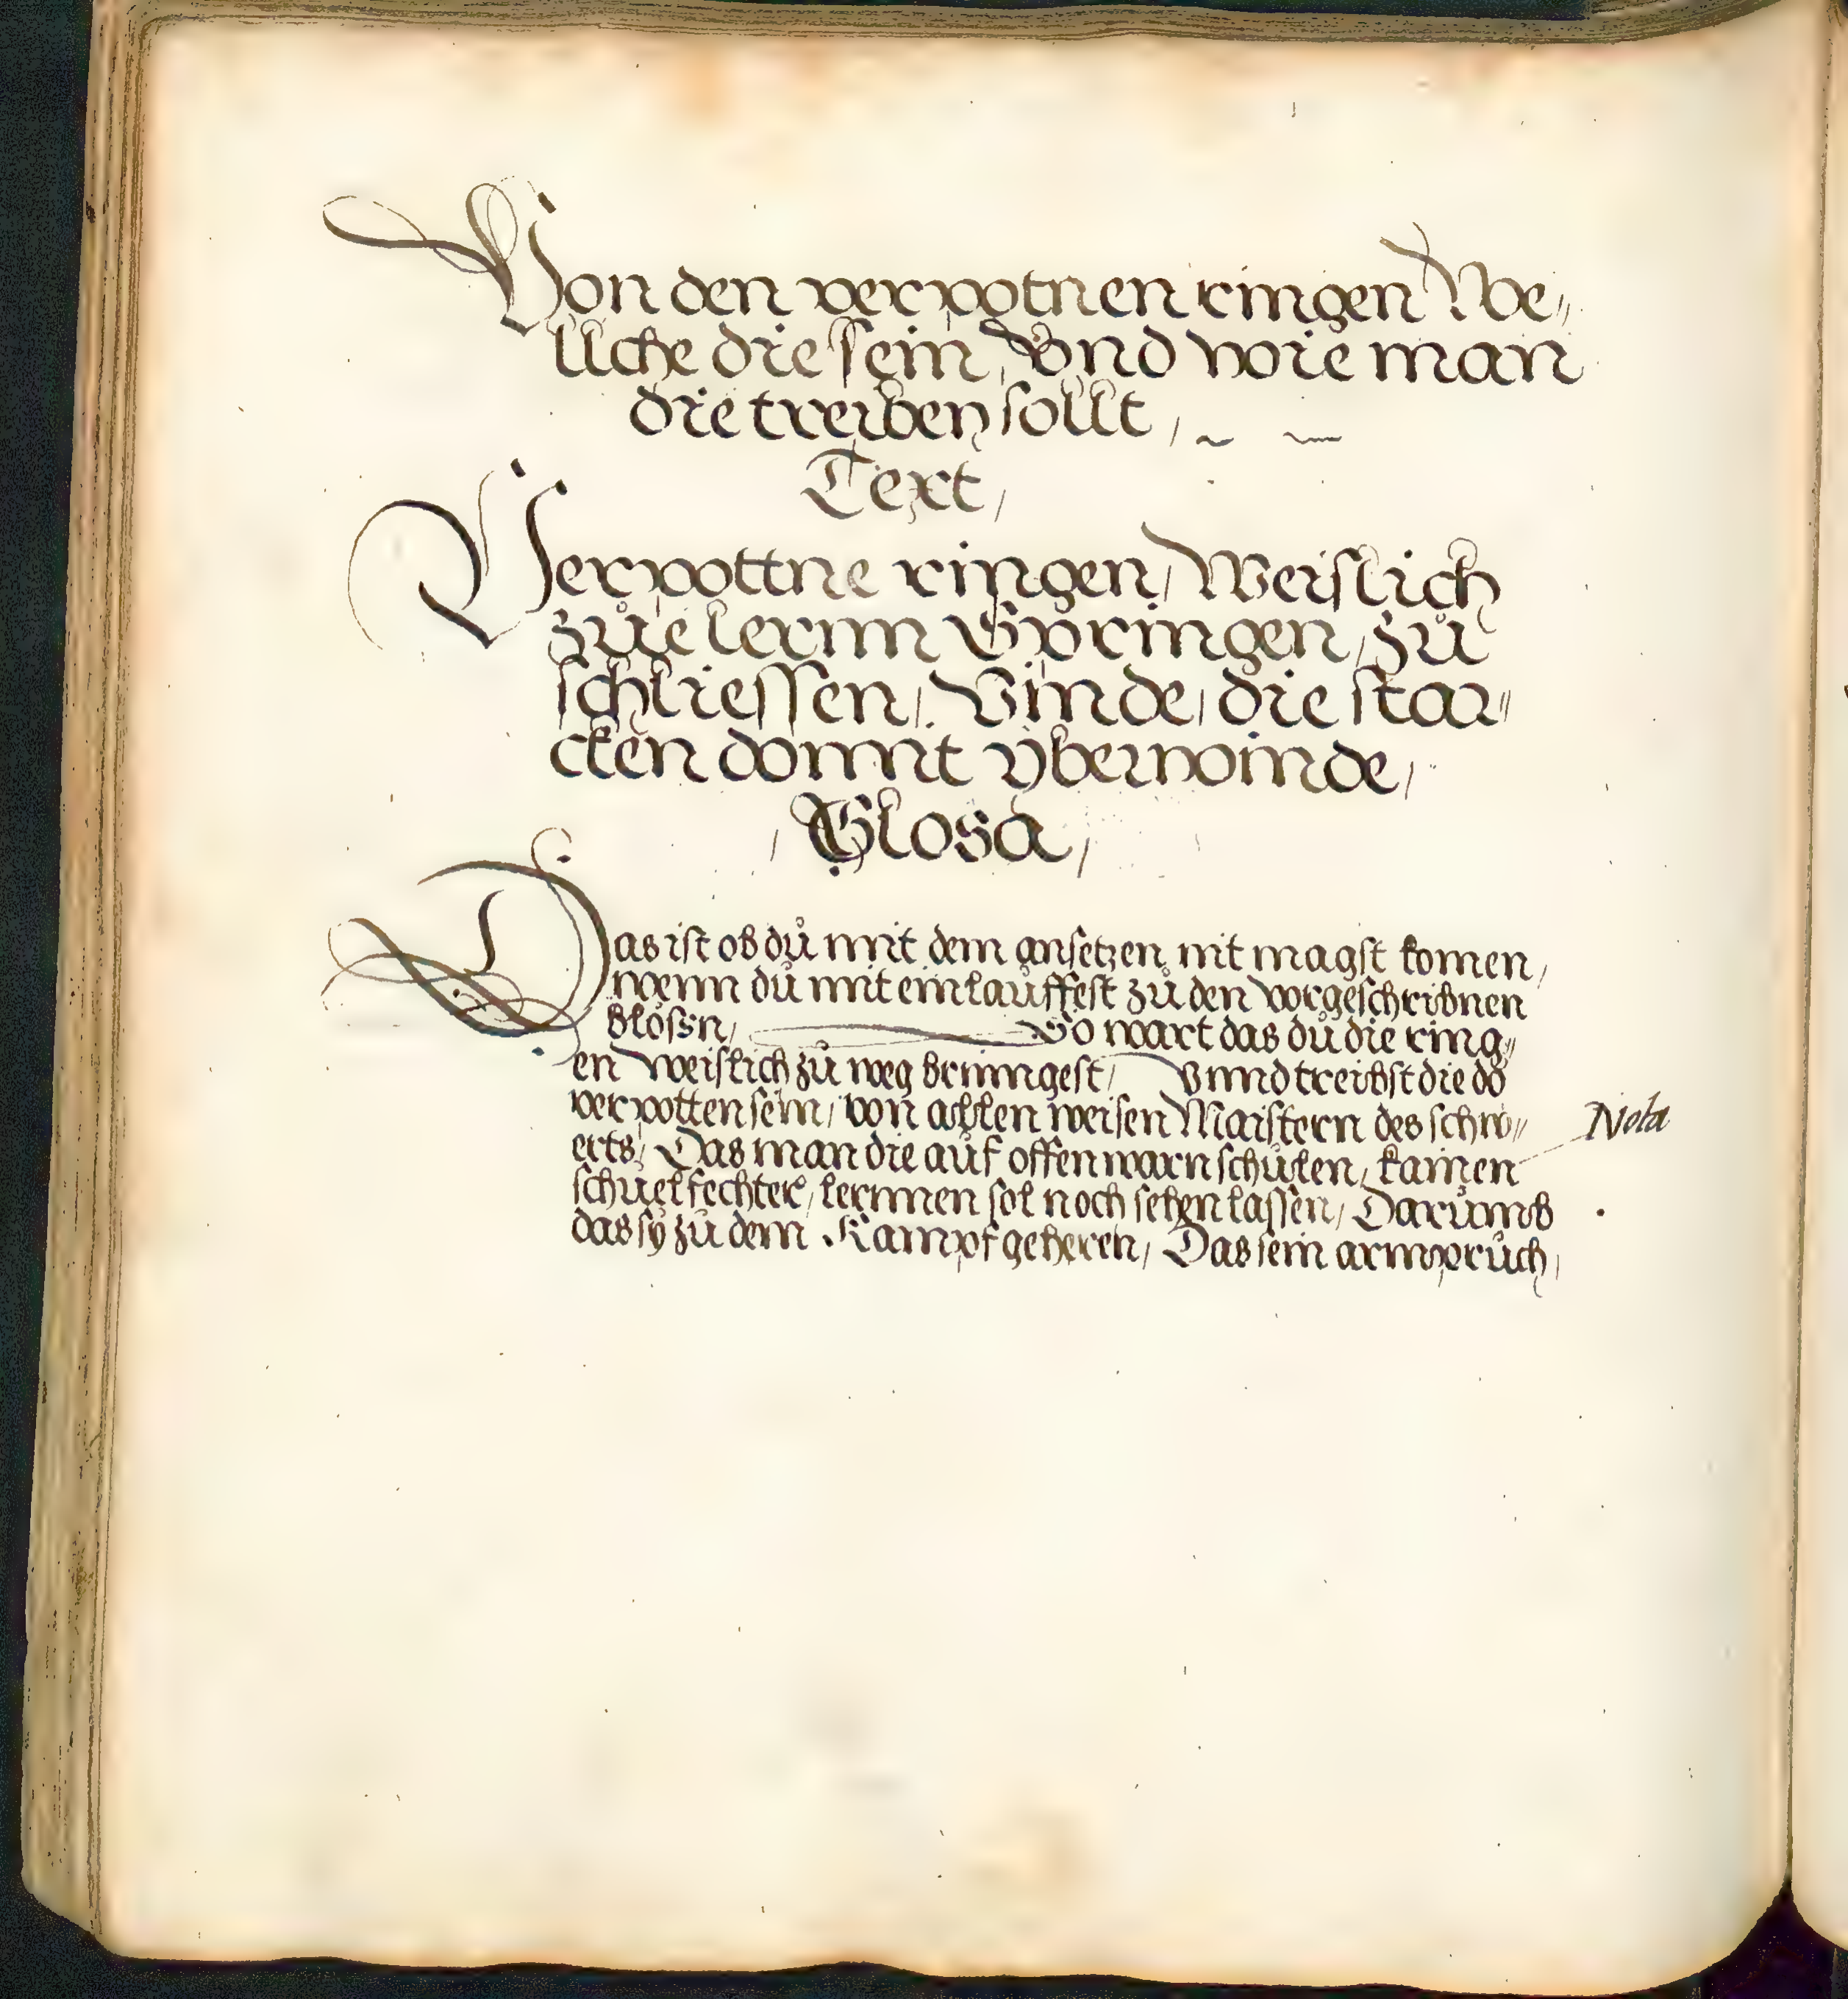 Von den verpotnen ringen We„
lliche die sein, Vnd wie man
die treiben sollt,
Text,
Verpottne ringen, Weislich
zůe lernn Vpringen, zů
schliessen, Vinde, die star„
cken domit ÿberwinde,
, Glosa,
Das ist ob dů mit dem ansetzen nit magst komen,
wenn dů mit ein lauffest zů den vorgeschribnen
blössn, So wart das dů die ring„
en Weislich zů weg brinngest, Vnnd treibst die do
verpotten sein, von allen weisen Maistern des schw„
erts, Das man die aůf offenwarn schůlen, kainen
Nota
schůelfechter, lernnen sol noch sehen lassen, Darůmb
das sÿ zů dem Kampf geheren, Das sein armprůch,